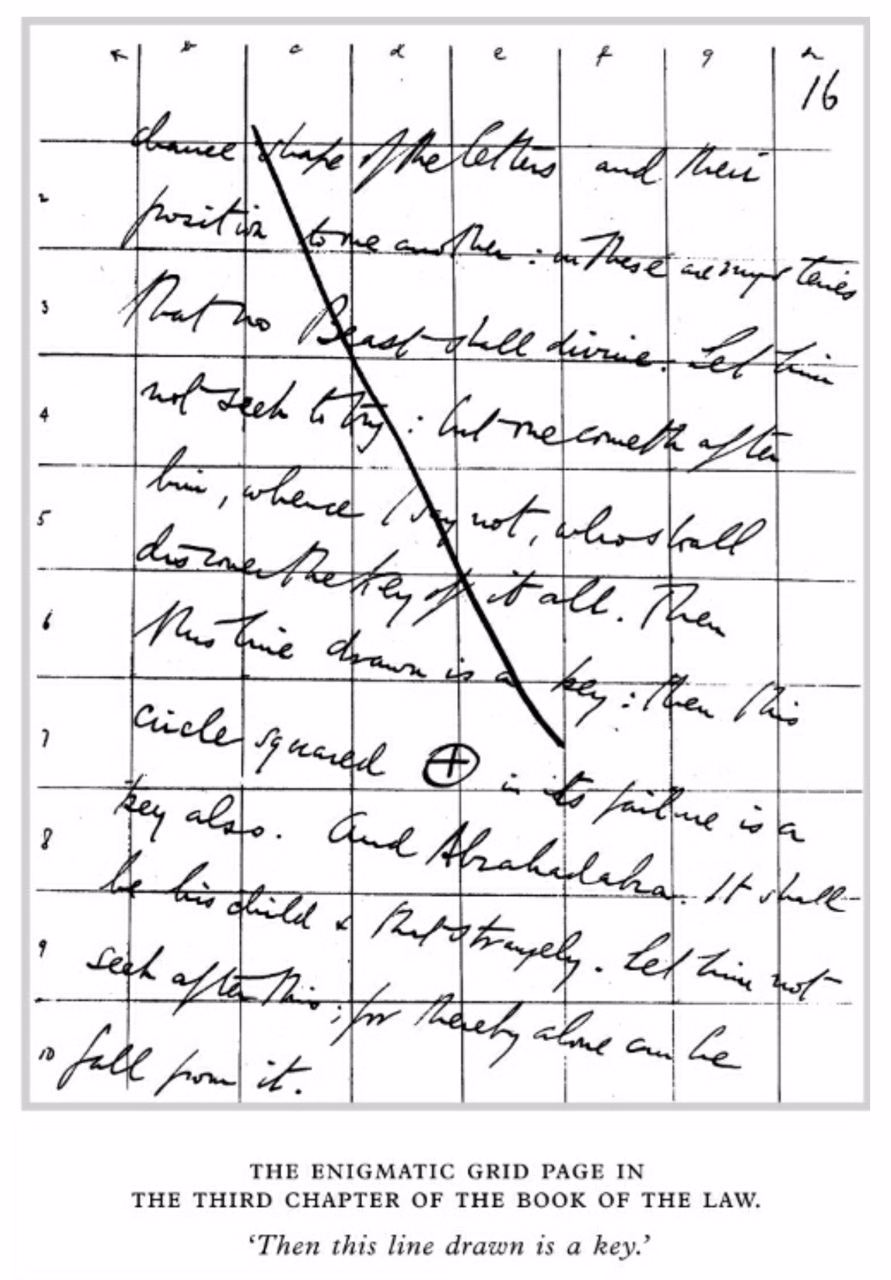 a b c d e f g h
16
chance shape of the letters and their
2 position to one another: in these are mysteries
3 that no Beast shall divine. Let him
4 not seek to try: but one cometh after
him, whence I say not, who shall
5
discover the Key of it all. Then
6 this line drawn is a key: then this
7 circle squared in its failure is a
key also. And Abrahadabra. It shall
8
be his child & that strangely. Let him not
9 seek after this; for thereby alone can he
10 fall from it.
THE ENIGMATIC GRID PAGE IN
THE THIRD CHAPTER OF THE BOOK OF THE LAW.
‘Then this line drawn is a key.’